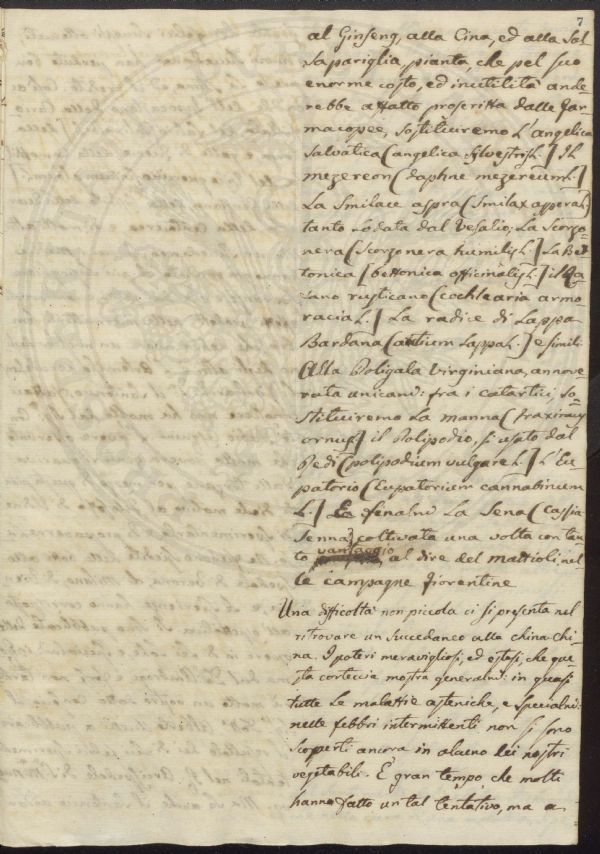 7
al Ginseng, alla Cina, ed alla Sal
sapariglia, pianta, che pel suo
enorme costo, ed inutilità ande
rebbe affatto proscritta dalle far
macopee, sostituiremo l'angelica
salvatica (angelica sylvestris L.] Il
mezereon (daphne mezereum L.]
La smilace aspra (smilax aspera L.]
tanto lodata dal Vesalio; La scorzo
nera (scorzonera humilis L.] La Bet
tonica [bettonica officinalis L.] il Ra
fano rusticano (cochlearia armo
racia L.] La radice di Lappa
Bardana (arctium Lappa L.] e simili
Alla Poligala Virginiana, annove
rata unicam: fra i catartici, so
stituiremo la manna (fraxinus
ornus] il Polipodio, sì usato dal
Redi (polipodium vulgare L.] L'Eu
patorio (Eupatorium cannabinum
L.] E finalm: la Sena (Cassia
Senna] coltivata una volta con tan
to vantaggio al dire del Mattioli nel
le campagne fiorentine
Una difficoltà non piccola ci si presenta nel
ritrovare un succedaneo alla china chi
na. I poteri meravigliosi, ed estesi, che que
sta corteccia mostra generalm: in quasi
tutte le malattie asteniche, e specialm:
nelle febbri intermittenti non si sono
scoperti ancora in alcuno dei nostri
vegetabili. È gran tempo, che molti
hanno fatto un tal tentativo, ma a